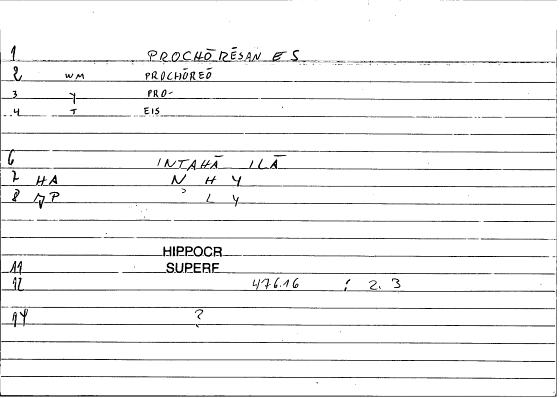 1 PROCHŌRĒSAN ES
2 WM PROCHŌREŌ
3 Y PRO-
4 T EIS
6 INTAHĀ ILĀ
7 HA N H Y
8 L Y
HIPPOCR
11 SUPERF
12 476.16 : 2. 3
14 ?